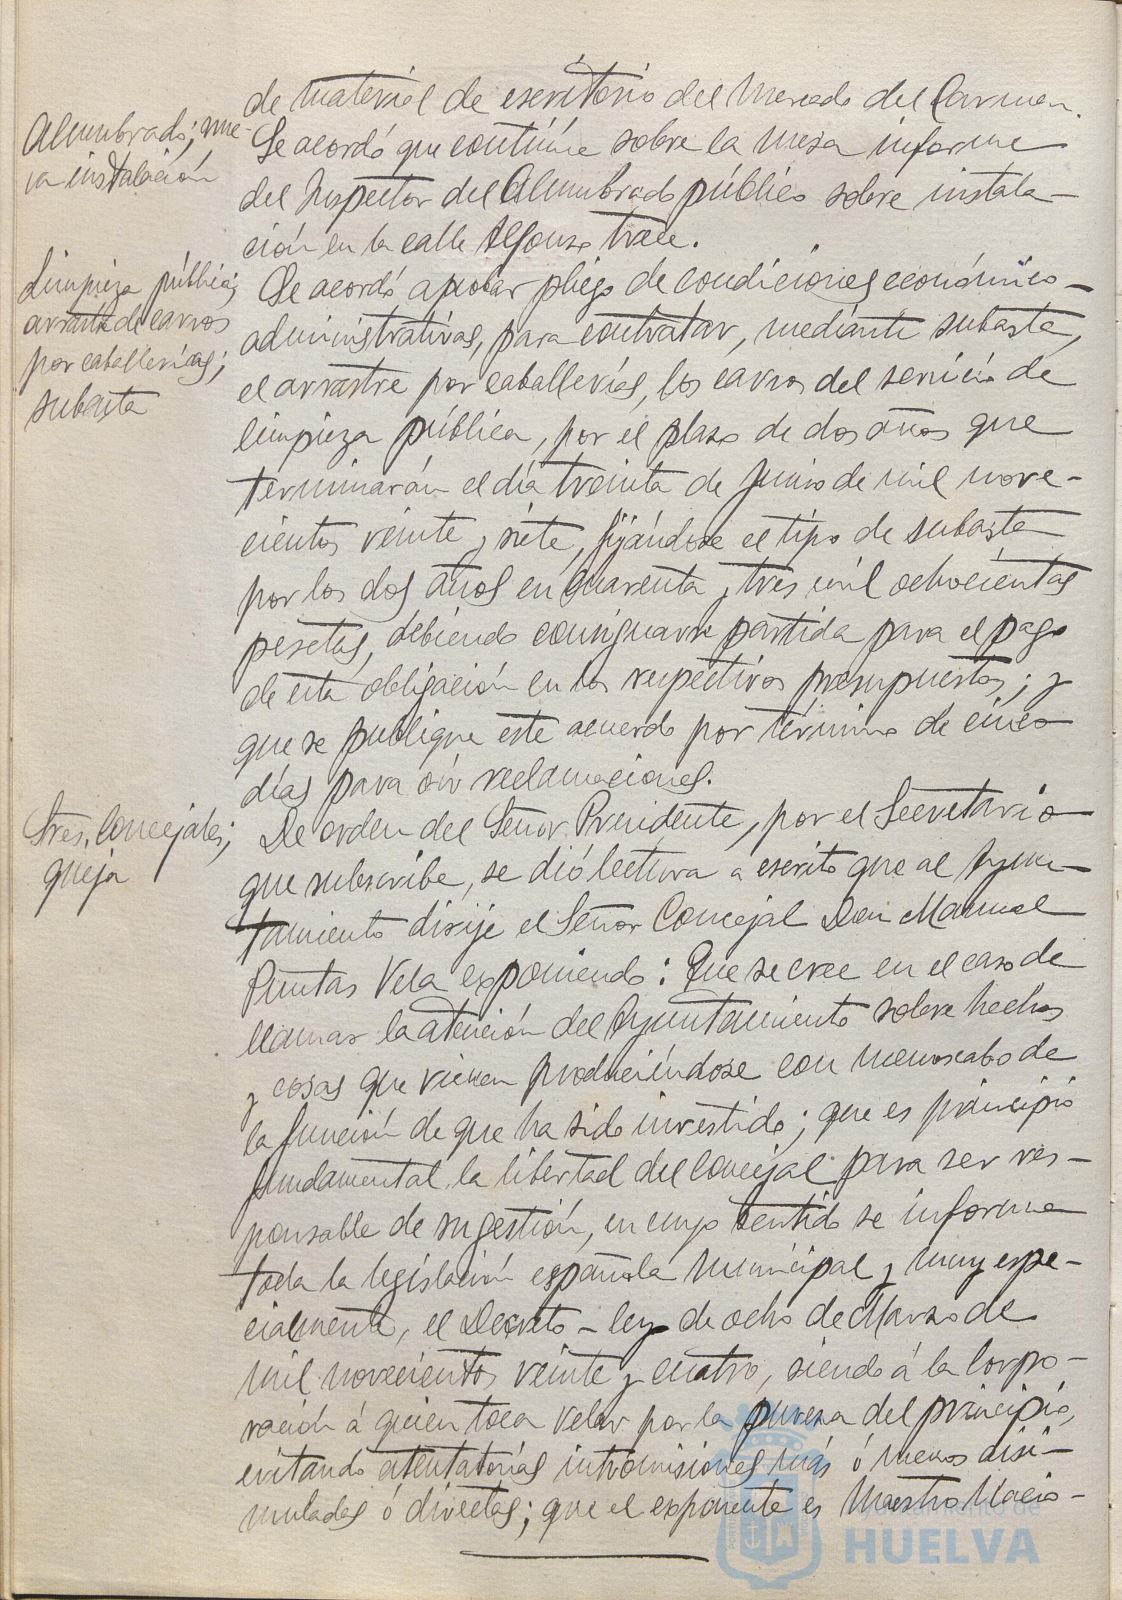 de material de escritorio del Mercado del Carmen.
Alumbrado; nue-
va instalación
Se acordó que continúe sobre la mesa informe
del Inspector del Alumbrado público sobre instala-
ción en la calle Alfonso trece.
Limpieza pública;
arrastre de carros
por caballerías;
subasta
Se acordó aprobar pliego de condiciones económico-
administrativas, para contratar, mediante subasta,
el arrastre por caballerías, los carros del servicio de
limpieza pública, por el plazo de dos años que
terminarán el día treinta de Junio de mil nove-
cientos veinte y siete, fijándose el tipo de subasta
por los dos años en cuarenta y tres mil ochocientas
pesetas, debiendo consignarse partida para el pago
de esta obligación en los respectivos presupuestos; y
que se publique este acuerdo por término de cinco
días para oír reclamaciones.
Sres. Concejales;
queja
De orden del Señor Presidente, por el Secretario
que subscribe, se dió lectura a escrito que al Ayun-
tamiento dirije el Señor Concejal Don Manuel
Puntas Vela exponiendo: Que se cree en el caso de
llamar la atención del Ayuntamiento sobre hechos
y cosas que vienen produciéndose con menoscabo de
la función de que ha sido investido; que es principio
fundamental la libertad del Concejal para ser res-
ponsable de su gestión, en cuyo sentido se informa
toda la legislación española municipal y muy espe-
cialmente, el Decreto-ley de ocho de Marzo de
mil novecientos veinte y cuatro, siendo á la Corpo-
ración á quien toca velar por la pureza del principio,
evitando atentatorias intromisiones más ó menos disi-
muladas ó directas; que el exponente es Maestro Nacio-
Ayuntamiento de
HUELVA